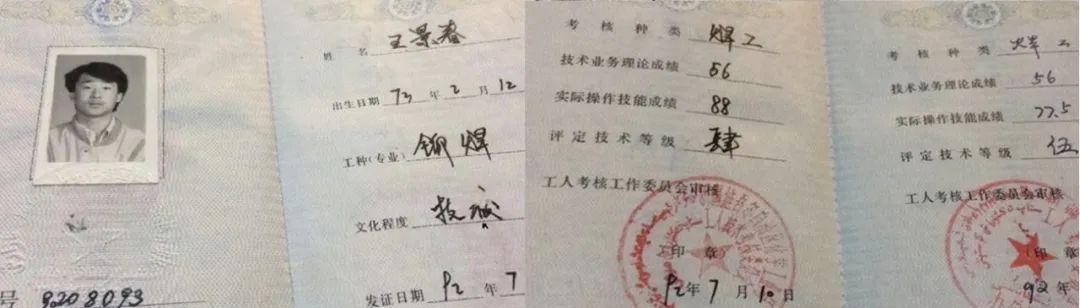 号 9208093
姓名 王景春
出生日期 73 年 2 月 12
工种(专业) 铆焊
文化程度 技
发证日期 92 年 7
考核种类 焊工
技术业务理论成绩 56
实际操作技能成绩 88
评定技术等级 肆
工人考核工作委员会审核
(印章)
92 年 7 月 10 日
考核种类 工
技术业务理论成绩 56
实际操作技能成绩 77.5
评定技术等级 伍
工人考核工作委员会审核
(印章
92 年